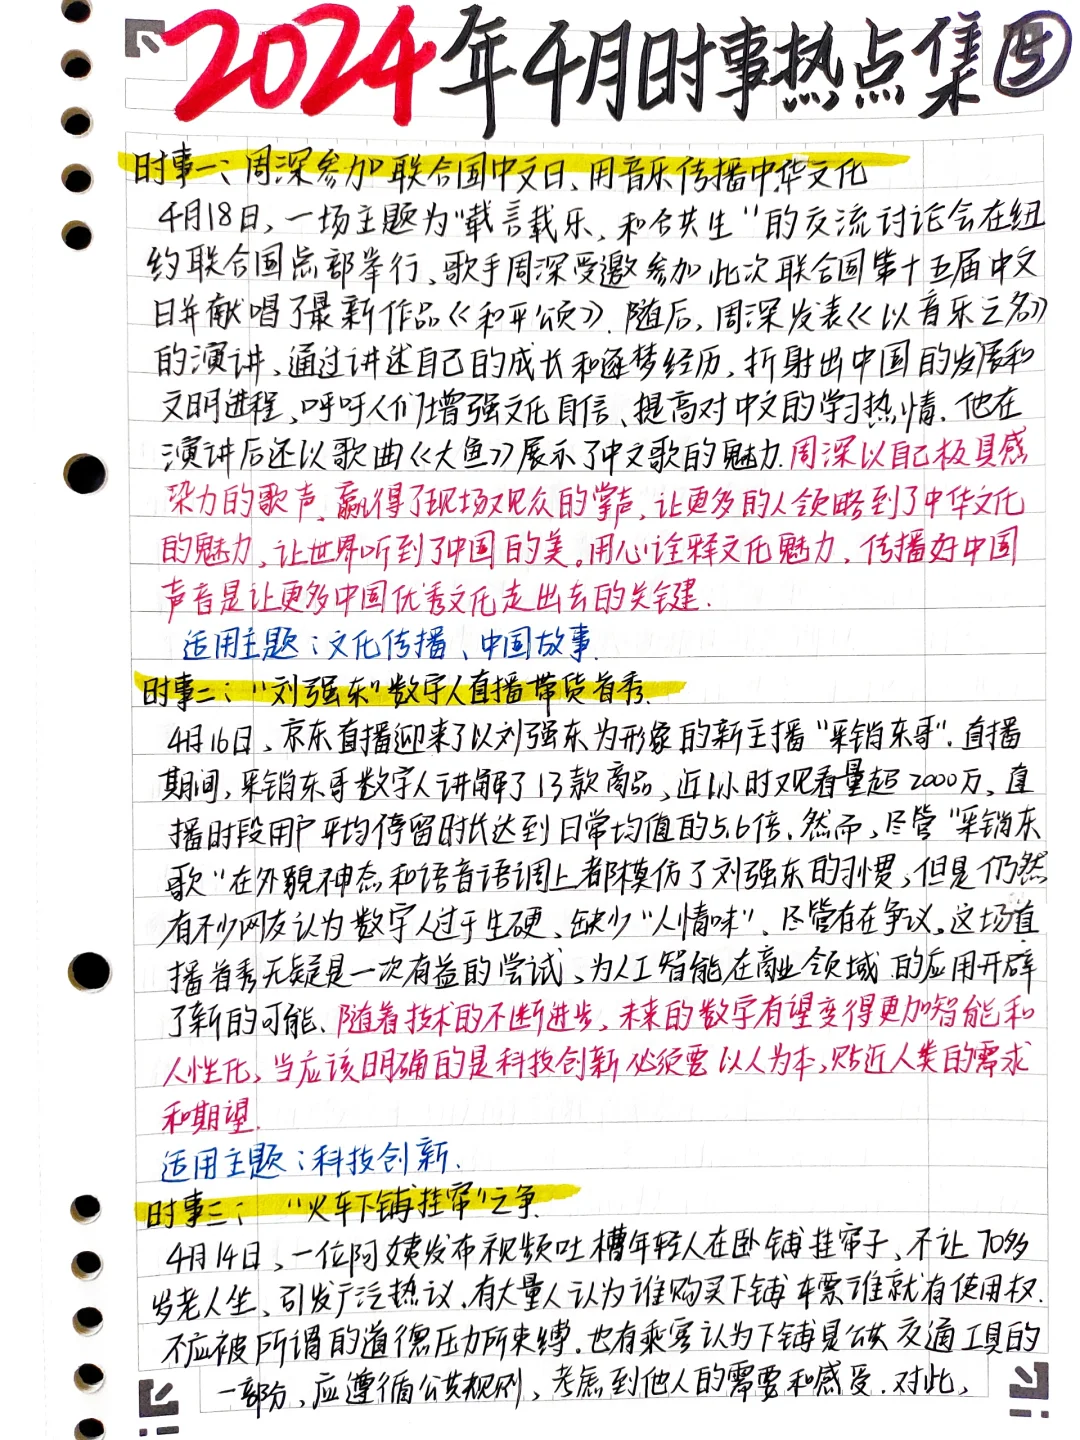 2024年4月时事热点集⑤
时事一、周深参加联合国中文日、用音乐传播中华文化
4月18日，一场主题为“载言载乐，和合共生”的交流讨论会在纽
约联合国总部举行、歌手周深受邀参加此次联合国第十五届中文
日并献唱了最新作品《和平颂》．随后，周深发表《以音乐之名》
的演讲、通过讲述自己的成长和逐梦经历，折射出中国的发展和
文明进程、呼吁人们增强文化自信、提高对中文的学习热情．他在
演讲后还以歌曲《大鱼》展示了中文歌的魅力．周深以自己极具感
染力的歌声、赢得了现场观众的掌声，让更多的人领略到了中华文化
的魅力，让世界听到了中国的美．用心诠释文化魅力、传播好中国
声音是让更多中国优秀文化走出去的关键．
适用主题：文化传播、中国故事．
时事二：“刘强东”数字人直播带货首秀．
4月16日、京东直播迎来了以刘强东为形象的新主播“采销东哥”．直播
期间，采销东哥数字人讲解了13款商品，近1小时观看量超2000万，直
播时段用户平均停留时长达到日常均值的5.6倍．然而，尽管“采销东
歌”在外貌神态和语音语调上都模仿了刘强东的习惯，但是仍然
有不少网友认为数字人过于生硬、缺少“人情味”．尽管存在争议，这场直
播首秀无疑是一次有益的尝试、为人工智能在商业领域的应用开辟
了新的可能．随着技术的不断进步，未来的数字有望变得更加智能和
人性化，当应该明确的是科技创新必须要以人为本，贴近人类的需求
和期望．
适用主题：科技创新．
时事三：“火车下铺挂帘”之争．
4月14日，一位阿姨发布视频吐槽年轻人在卧铺挂帘子，不让70多
岁老人坐、引发广泛热议．有大量人认为谁购买下铺车票谁就有使用权．
不应被所谓的道德压力所束缚．也有乘客认为下铺是公共交通工具的
一部分，应遵循公共规则，考虑到他人的需要和感受．对此，